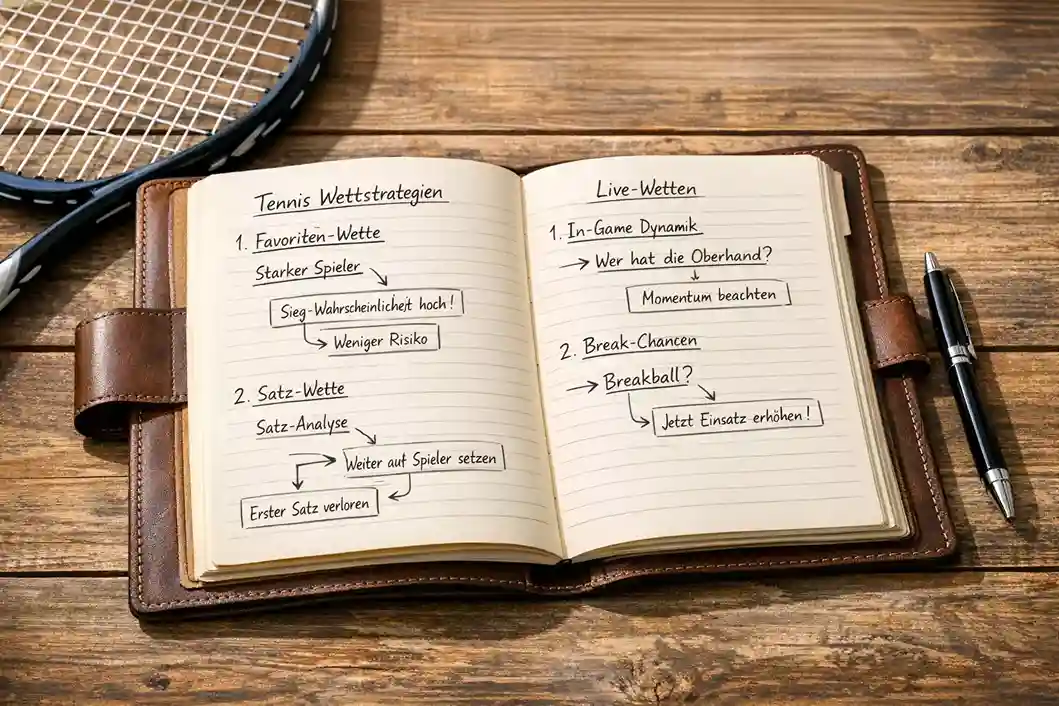 Tennis Wettstrategien
1. Favoriten-Wette
Starker Spieler
Sieg-Wahrscheinlicheit hoch!
Weniger Risiko
2. Satz-Wette
Satz-Analyse
Weiter auf Spieler setzen
Erster Satz verloren
Live-Wetten
1. In-Game Dynamik
Wer hat die Oberhand?
Momentum beachten
2. Break-Chancen
Breakball?
Jetzt Einsatz erhöhen!